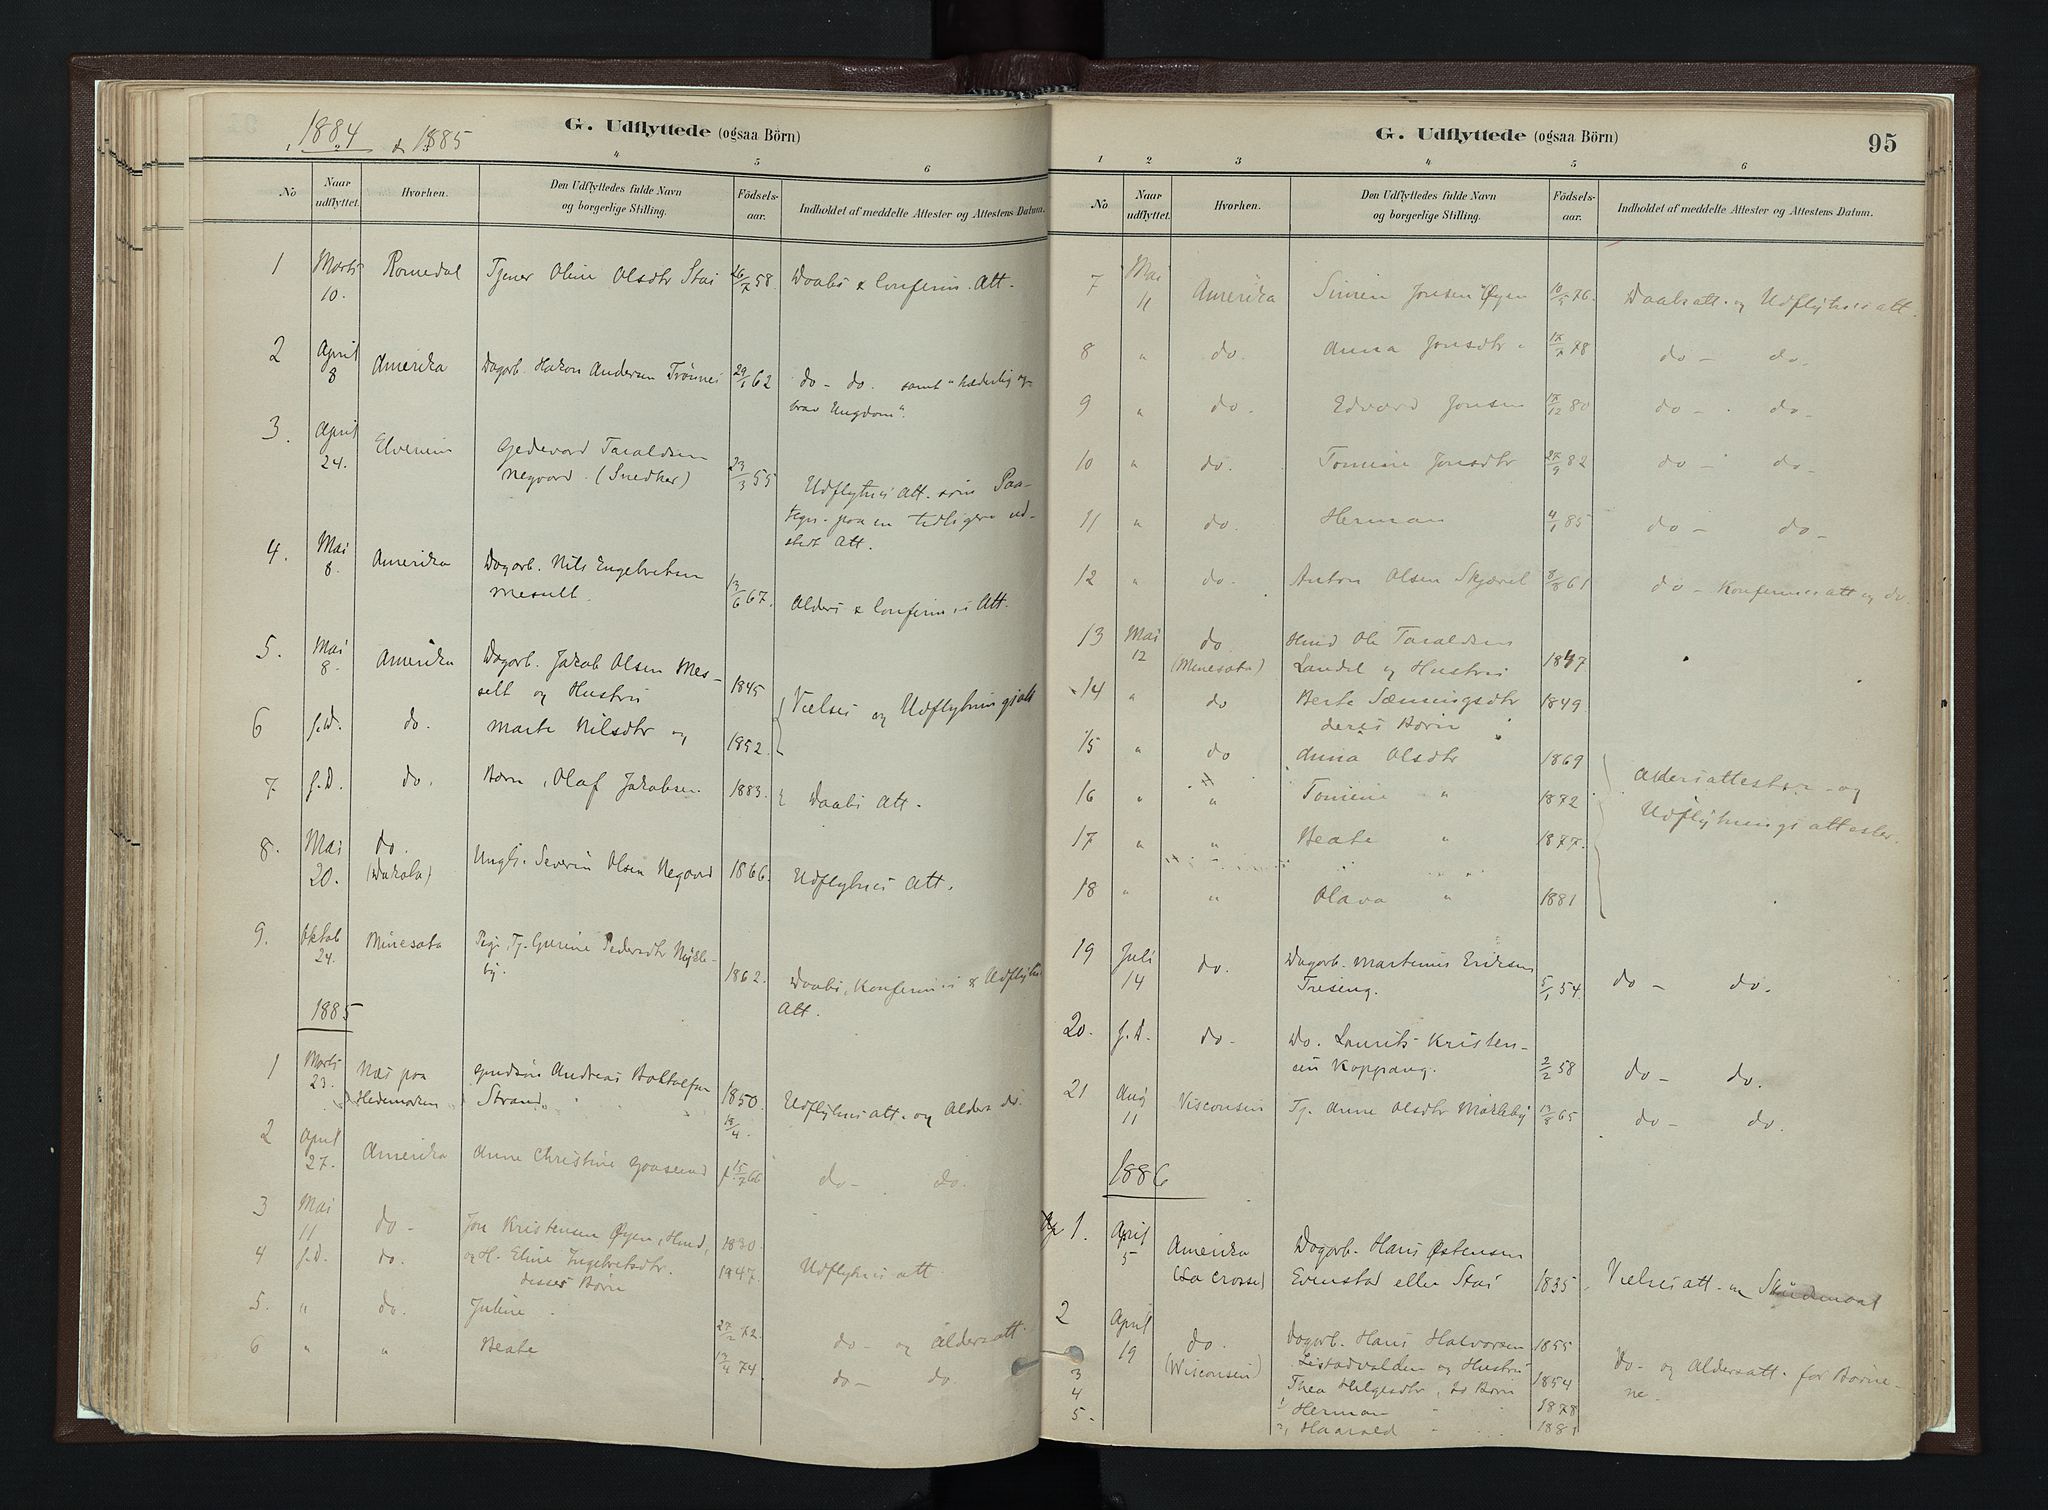 1884 & 1885
G. Udflyttede (ogsaa Börn)
4 5 6
No Naar udflyttet. Hvorhen. Den Udflyttedes fulde Navn og borgerlige Stilling. Födsels-aar. Indholdet af meddelte Attester og Attestens Datum.
1 Marts 10. Romedal Tjener Oline Olsdtr Stai 26/7 58. Daabs & Confirm. Att.
2 April 8 Amerika Dagarb. Hakon Andersen Trönnes 29/1 62 do - do. samt "hæderlig og
brav Ungdom".
3. April 24. Elverum Gedevard Taraldsen
Negaard. (Snedker) 29/3 55 Udflytnis Att. som Paa-
tegn. paa en tidligere ud-
stedt Att.
4. Mai 8. Amerika Dagarb. Nils Engebretsen
Messelt. 13/6 67. Alders & Confirm.s Att.
5. Mai 8. Amerika Dagarb. Jakob Olsen Mes-
selt og Hustru 1845 Vielses og Udflytningsatt
6 s.D. do. Marte Nilsdtr og 1852.
7. s.D. do. Barn, Olaf Jakobsen. 1883. Daabs Att.
8. Mai 20. do. (Dakota) Ungk. Severin Olsen Negaard 1866. Udflytnis Att.
9. Oktob 24. Minesota Pige, Tj. Gurine Pedersdtr Nykle-
by. 1862. Daabs, Konfirm.s & Udflytnis
Att.
1885
1 Marts 23. Næs paa Hedemarken Gaardssön Andreas
Strand. 1850. Udflytnis att. og Alders do.
2 April 27. Amerika Anne Christine 15/7 66 do - do.
3 Mai 11 do - Jon Kristensen Øyen, Husm., 1830.
4 s.D. do. og H. Eline Ingebretsdtr. 1947. Udflytnis att.
disses Børn
5. " do. Juline 27/2 72. do - og Aldersatt.
6 " " Beate 13/4 74. do - do.
G. Udflyttede (ogsaa Börn)
95
1 2 3 4 5 6
No Naar udflyttet. Hvorhen. Den Udflyttedes fulde Navn og borgerlige Stilling. Födsels-aar. Indholdet af meddelte Attester og Attestens Datum.
7 Mai 11 Amerika Simen Jonsen Øyen 10/5 76. Daabsatt. og Udflytnis att.
8 " do. Anna Jonsdtr " 17/7 78 do - do.
9 " do. Edvard Jonsen 17/12 80 do - do.
10 " do. Tomine Jonsdtr 27/9 82 do - do.
11 " do. Herman 4/1 85 do - do.
12 " do. Anton Olsen Skjærel 8/8 61 do - Konfirm.s att og do.
13 Mai 12 do (Minesota) Husm Ole Taraldsen
Landet og Hustru 1847
14 " do Berte Sæmingsdtr 1849.
deres Børn
15 " do Anna Olsdtr 1869 Aldersattester og
16 " " Tomine " 1872 Udflytningsattester.
17 " " Beate " 1877.
18 " " Olava " 1881
19 Juli 14 do. Dagarb. Martinus Eriksen
Treseng. 5/1 54. do - do.
20. s.D. do. Do. Laurits Kristen-
sen Koppang. 2/2 58 do - do.
21 Aug 11 Visconsin Tj. Anne Olsdtr Mykleby 13/8 65 do - do.
1886
1. April 5 Amerika (La Crosse) Dagarb. Hans Østensen
Evenstad eller Stai 1835. Vielses att.
2 April 19 do. (Wisconsin) Dagarb. Hans Halvorsen 1855 Do - og Aldersatt. for Børne-
ne.
Livstadvolden og Hustru
3 Thea Helgesdtr, 2 Børn 1854
4 Herman 1878
5 Haarald 1881